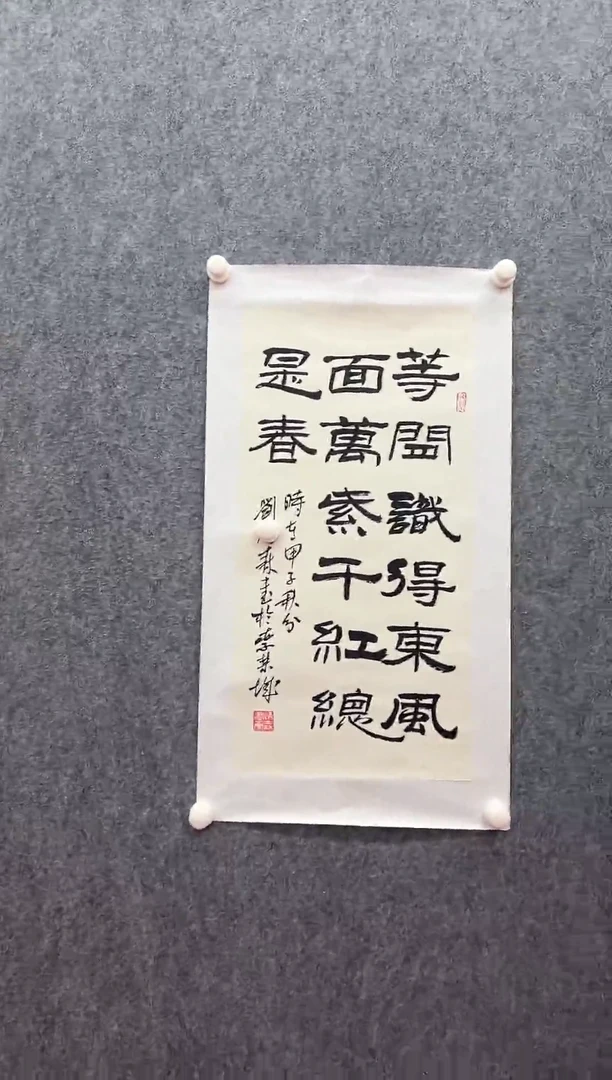 等閒識得東風
面萬紫千紅總
是春
時在甲子秋分
劉 森書於 城